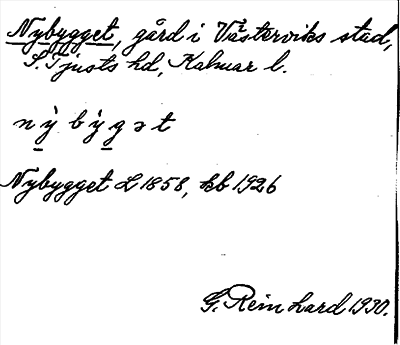 Nybygget, gård i Västerviks stad,
S. Tjusts hd, Kalmar l.
nỳ̠ bỳg̠ət
Nybygget L 1858, kb 1926
G. Reinhard 1930.